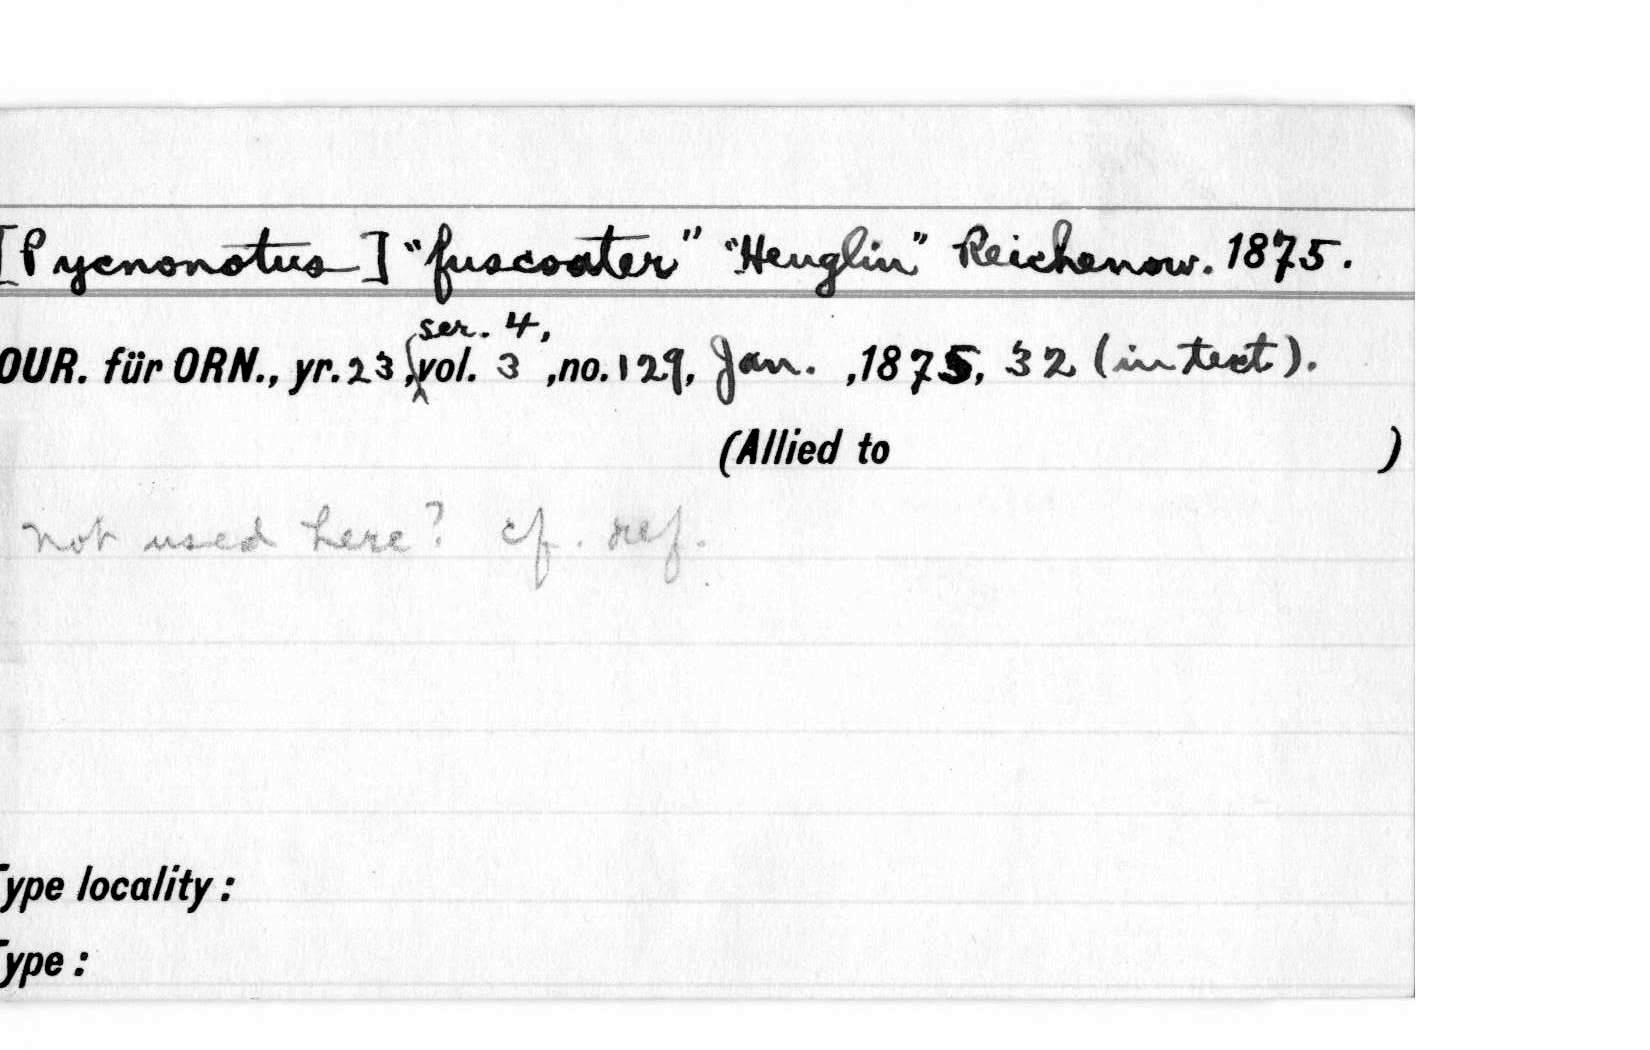 [Pycnonotus] "fuscoater" "Heuglin" Reichenow. 1875.
ser. 4,
OUR. für ORN., yr. 23, vol. 3, no. 129, Jan. , 1875, 32 (in text).
(Allied to )
not used here? cf. ref.
Type locality:
Type: